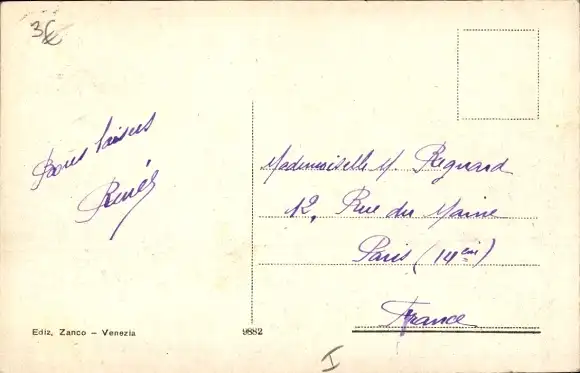 3€
Bons baisers
René
Mademoiselle M. Regnard
12, Rue du Maine
Paris (14em)
France
Ediz. Zanco – Venezia
9882
I